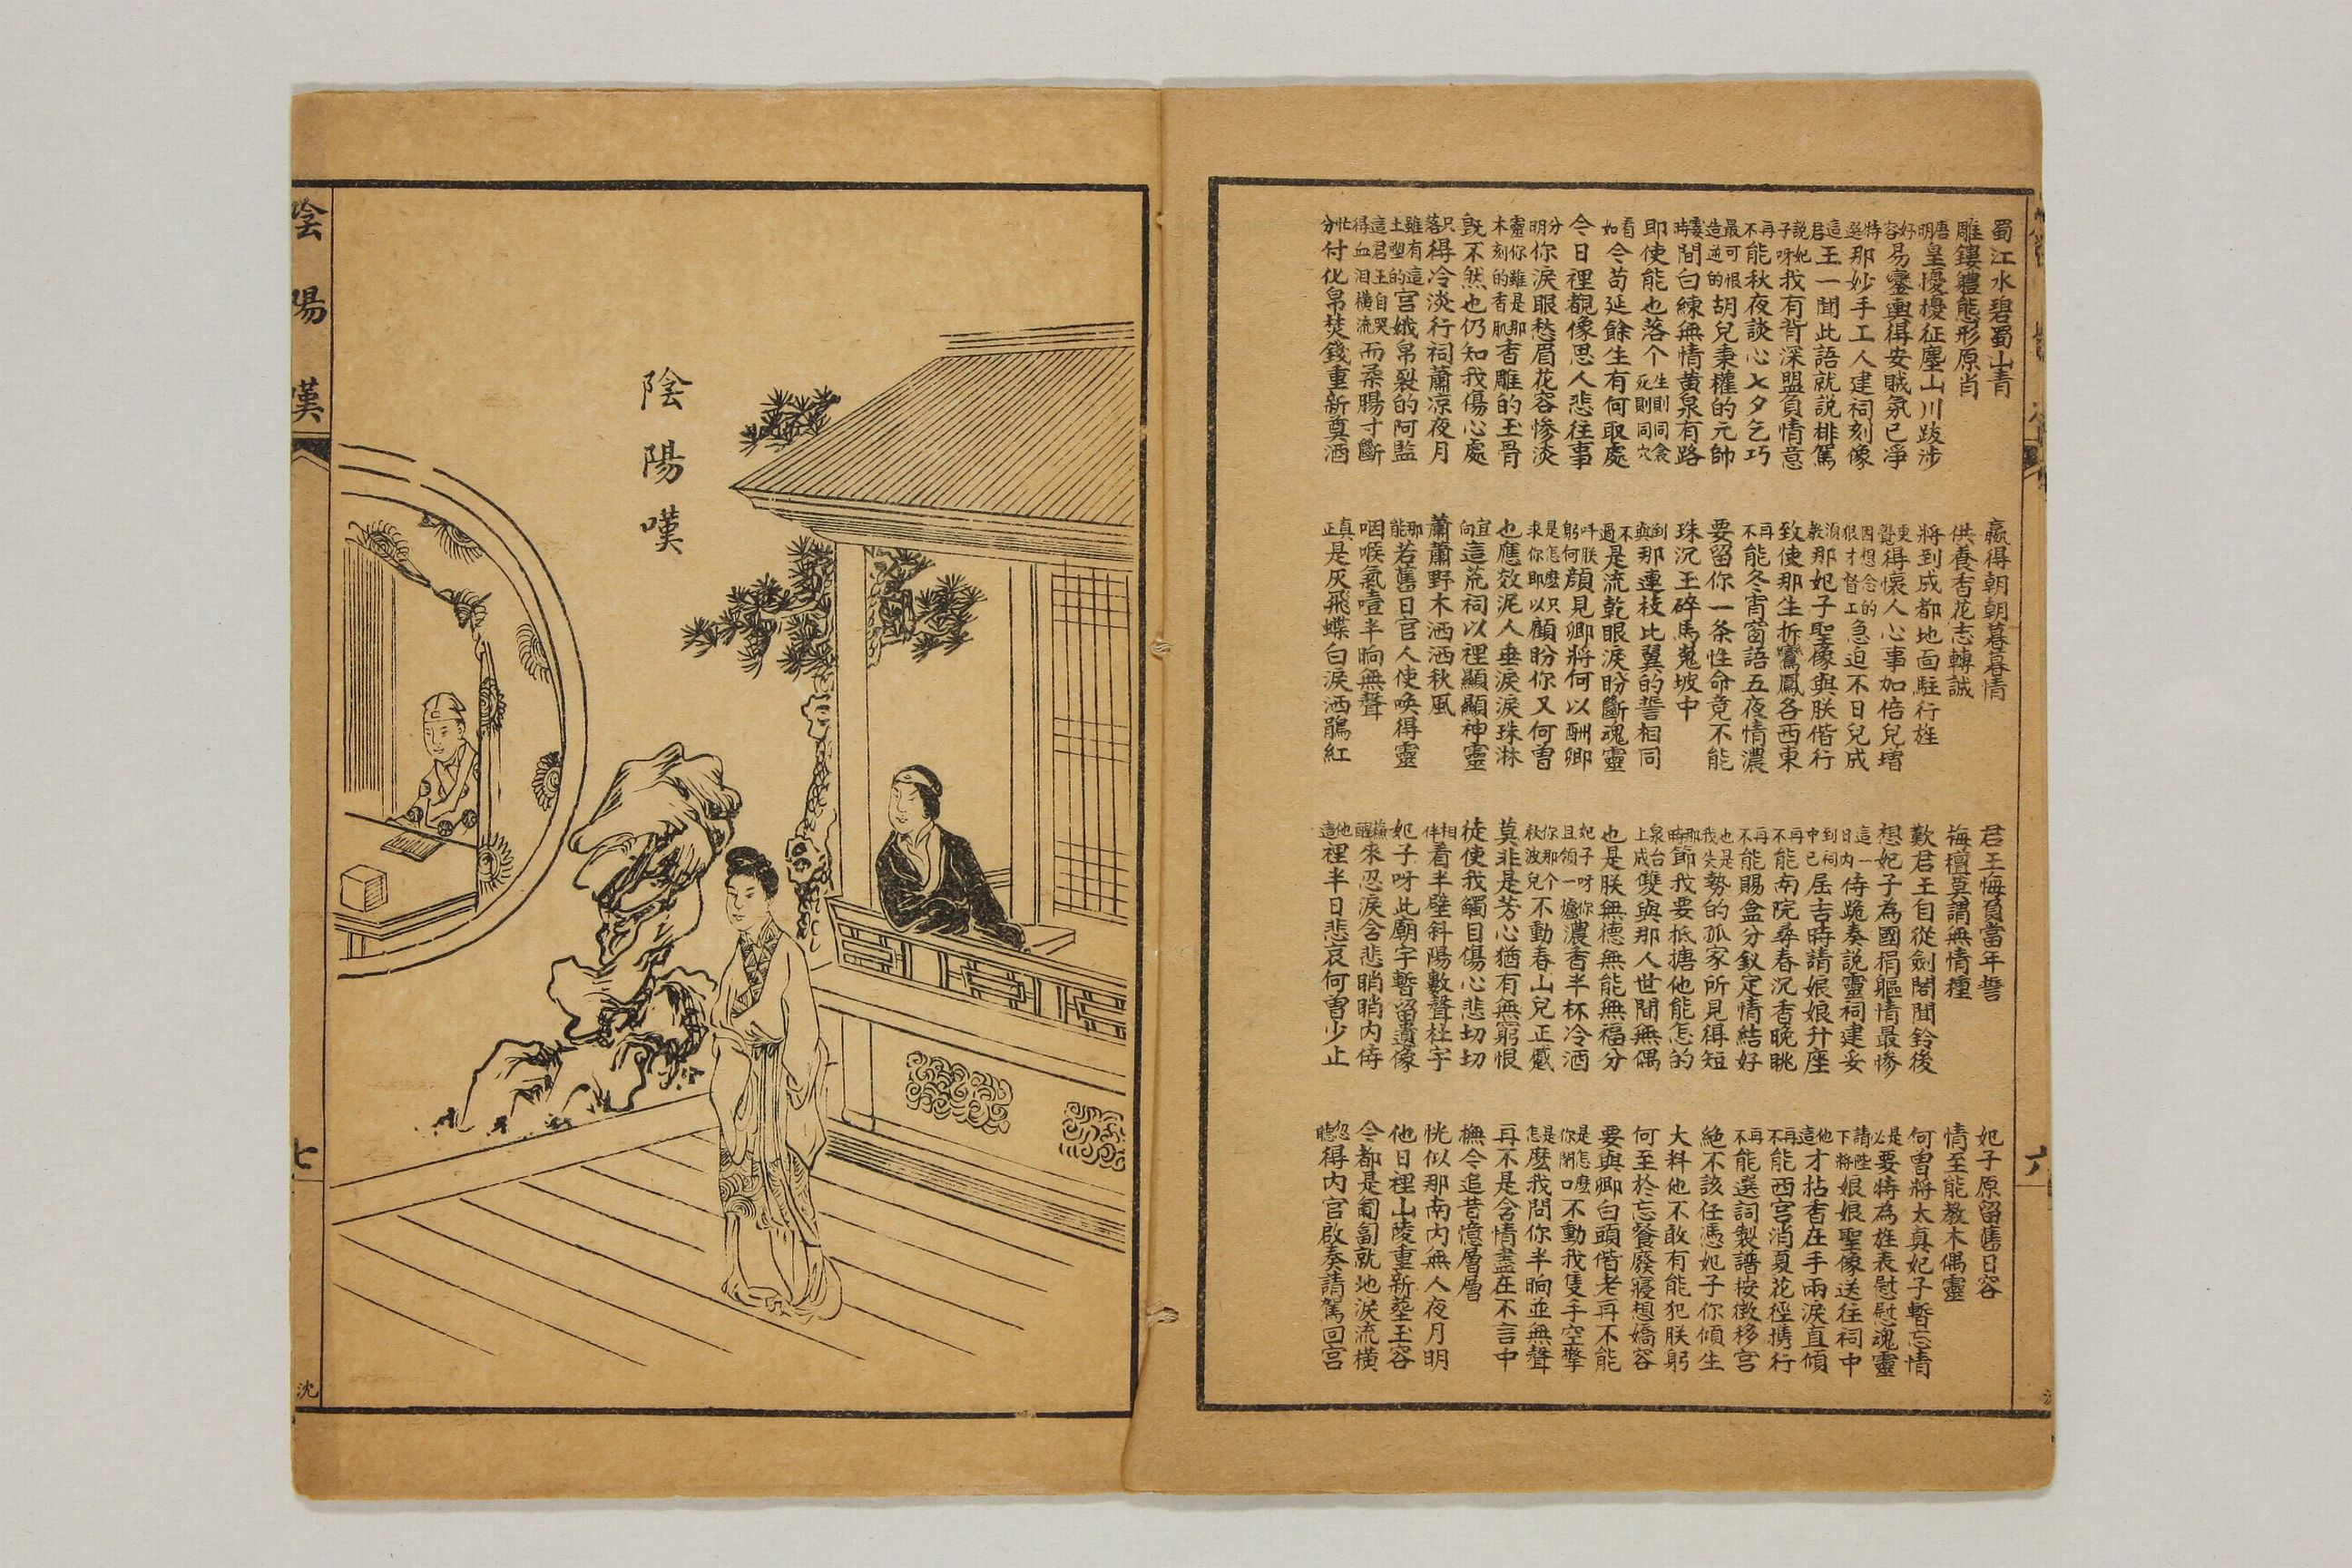 蜀江水碧蜀山青
贏得朝朝暮暮情
君王悔負當年誓
妃子原留舊日容
雕鏤體態形原肖
供養香花志轉誠
梅檀莫謂無情種
情至能教木偶靈
唐明皇擾擾征塵山川跋涉
將到成都地面駐行旌
歎君王自從劍閣聞鈴後
何曾將太真妃子暫忘情
好容易鑾輿得安賊氛已淨
更覺得懷人心事如倍兒增
想妃子為國捐軀情最慘
是必要特為旌表慰慰魂靈
特選那妙手工人建祠刻像
因想念的狠才督工急迫不日兒成
這一日内侍跪奏說靈祠建妥
請陛下將娘娘聖像送往祠中
這君王一聞此語就說排駕
須教那妃子聖像與朕偕行
到祠中已屆吉時請娘娘升座
他這才拈香在手兩淚直傾
說妃子呀我有背深盟負情意
致使那生拆鸞鳳各西東
再不能南院尋春沉香晚眺
再不能西宮消夏花徑携行
再不能秋夜談心七夕乞巧
再不能冬宵窗語五夜情濃
再不能賜盒分釵定情結好
再不能選詞製譜按徵移宮
最可恨造逆的胡兒秉權的元帥
要留你一条性命竟不能
也是我失勢的孤家所見得短
絶不該任憑妃子你傾生
霎時間白練無情黄泉有路
珠沉玉碎馬嵬坡中
那時節我要抵搪他能怎的
大料他不敢有能犯朕躬
即使能也落个生則同衾死則同穴
到與那連枝比翼的誓相同
泉台上成雙與那人世間無偶
何至於忘餐廢寢想嬌容
看如今苟延餘生有何取處
不過是流乾眼淚盼斷魂靈
也是朕無德無能無福分
要與卿白頭偕老再不能
今日裡覩像思人悲往事
呌朕躬何顔見卿將何以酬卿
妃子呀你且領一爐濃香半杯冷酒
是怎麽你閉口不動我隻手空擎
分明你淚眼愁眉花容慘淡
是怎麽只求你即以顧盼你又何曽
你那个秋波兒不動春山兒正蹙
是怎麽我問你半晌並無聲
你雖是那靈木刻的香肌杏雕的玉骨
也應效泥人垂淚淚珠淋
莫非是芳心猶有無窮恨
再不是含情盡在不言中
旣不然也仍知我傷心處
宜向這荒祠以裡顯顯神靈
徒使我觸目傷心悲切切
撫今追昔憶層層
只落得冷淡行祠蕭凉夜月
蕭蕭野木洒洒秋風
相伴着半壁斜陽數聲杜宇
恍似那南内無人夜月明
雖有這土塑的宮娥帛裂的阿監
那能若舊日官人使喚得靈
妃子呀此廟宇暫留遺像
他日裡山陵重新塟玉容
這君王自哭得血泪橫流而柔腸寸斷
咽喉氣噎半晌無聲
蘇醒來忍淚含悲瞞瞞内侍
今都是匍匐就地淚流橫
忙分付化帛焚錢重新奠酒
真正是灰飛蝶白淚洒鵑紅
他這裡半日悲哀何曽少止
忽聽得内官啟奏請駕回宮
六
陰陽嘆
陰陽嘆
七
沈